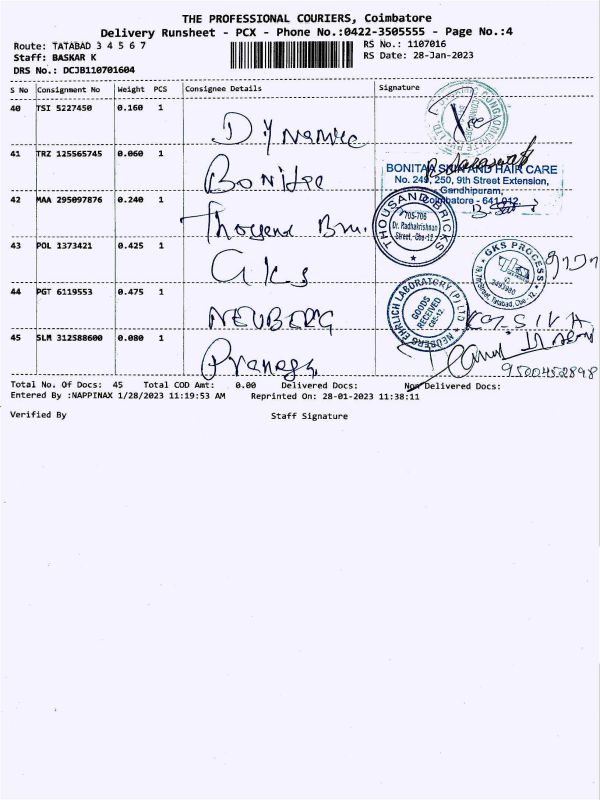 THE PROFESSIONAL COURIERS, Coimbatore
Delivery Runsheet - PCX - Phone No.:0422-3505555 - Page No.:4
Route: TATABAD 3 4 5 6 7
RS No.: 1107016
Staff: BASKAR K
RS Date: 28-Jan-2023
DRS No.: DCJB110701604
S No Consignment No Weight PCS Consignee Details Signature
40 TSI 5227450 0.160 1 Dynamic
41 TRZ 125565745 0.060 1 Bonitaa
BONITAA SKIN AND HAIR CARE
No. 249, 250, 9th Street Extension,
Gandhipuram,
Coimbatore - 641 012.
42 MAA 295097876 0.240 1
THOUSAND BRICKS
705-706
Dr. Radhakrishnan
Street, Cbe-12
43 POL 1373421 0.425 1 GKS
GKS PROCESS
Tatabad, Cbe - 12.
44 PGT 6119553 0.475 1 NEUBERG
NEUBERG EHRLICH LABORATORY (P) LTD
GOODS
RECEIVED
CBE-12.
45 SLM 312588600 0.080 1
9500452898
Total No. Of Docs: 45 Total COD Amt: 0.00 Delivered Docs: Non Delivered Docs:
Entered By :NAPPINAX 1/28/2023 11:19:53 AM Reprinted On: 28-01-2023 11:38:11
Verified By Staff Signature